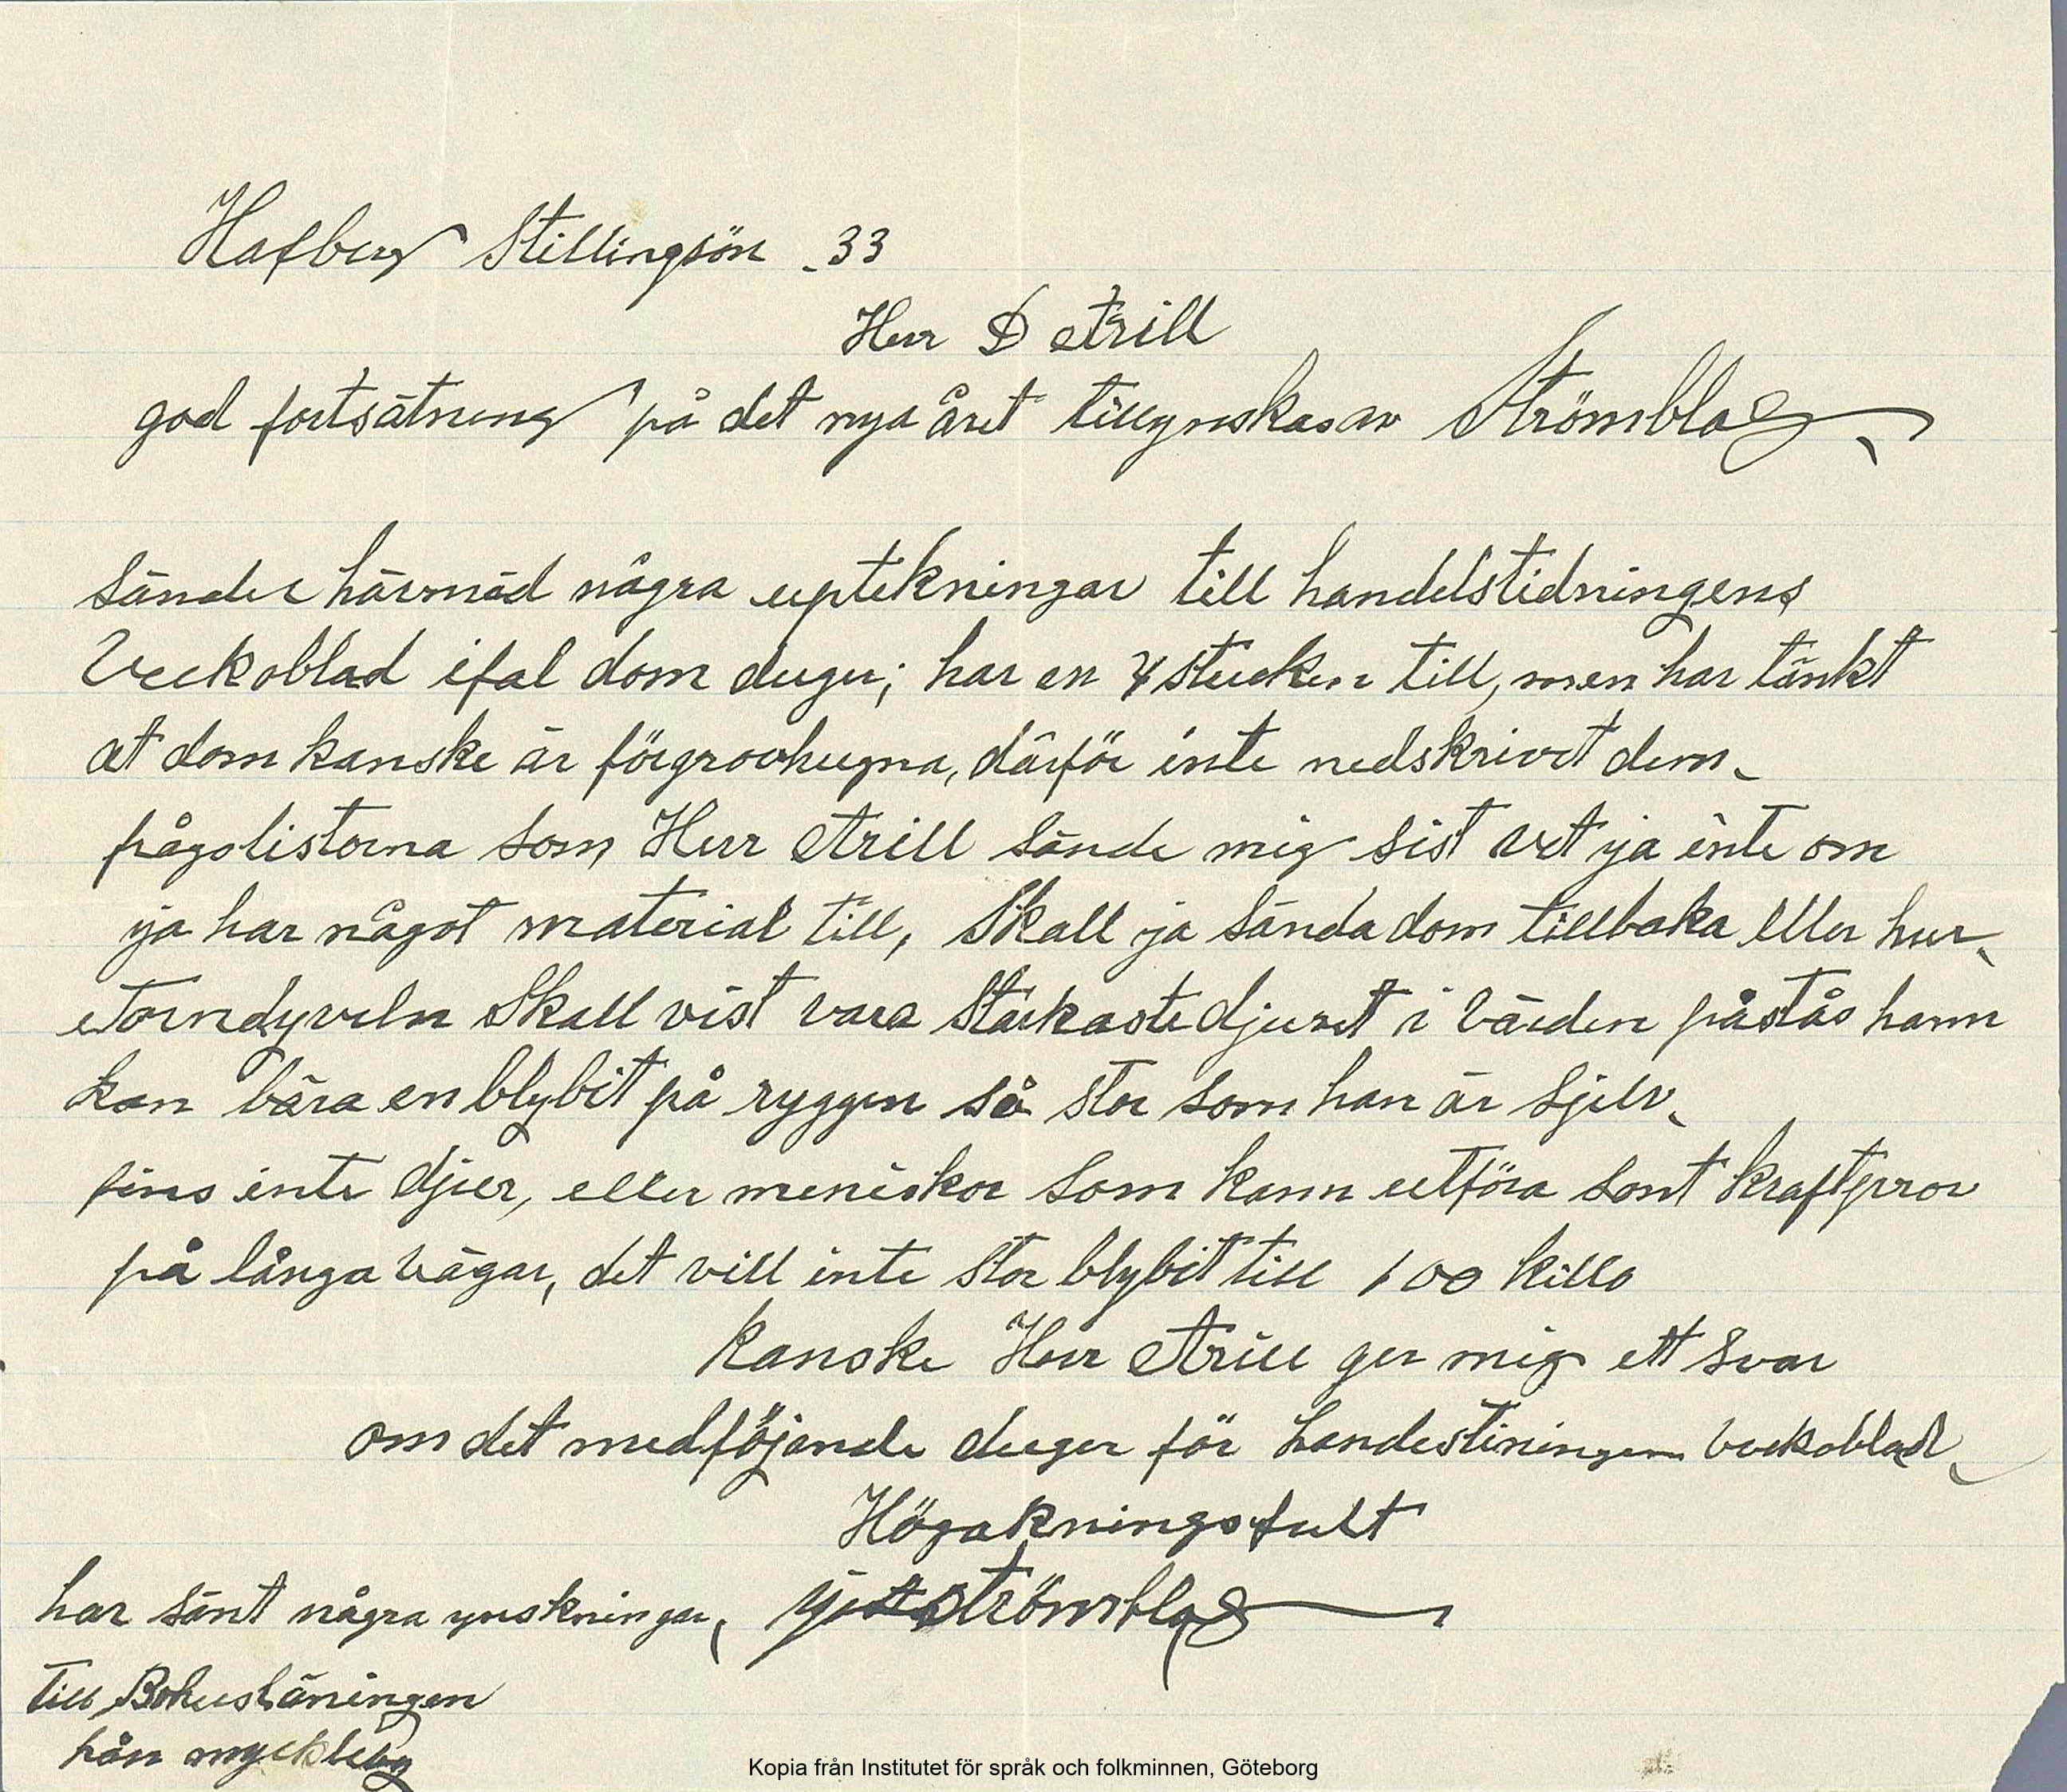 Hafberg Stillingsön -33
Herr D Arill
god fortsätning på det nya året tillynskas av Strömblad
sänder härmäd några uptekningar till handelstidningens
Veckoblad ifal dom duger; har en 4 stucken till, men har tänkt
at dom kanske är förgrovhugna, därför inte nedskrivit dem
frågolistorna som Herr Arill sände mig sist vet ja inte om
ja har något material till, Skall ja sända dom tillbaka Eller hur
Torndyveln Skall vist vara starkaste djuret i värden påstås hann
kan bära en blybit på ryggen så stor som han är sjelv
fins inte djur, eller meniskor som kann utföra sont kraftprov
på långa vägar, det vill inte stor blybit till 100 killo
Kanske Herr Arill ger mig ett svar
om det medföjande duger för handestiningen veckoblad
Högakningsfult
har sänt några ynskningar, Strömblad
till Bohusläningen
från myckleby
Kopia från Institutet för språk och folkminnen, Göteborg